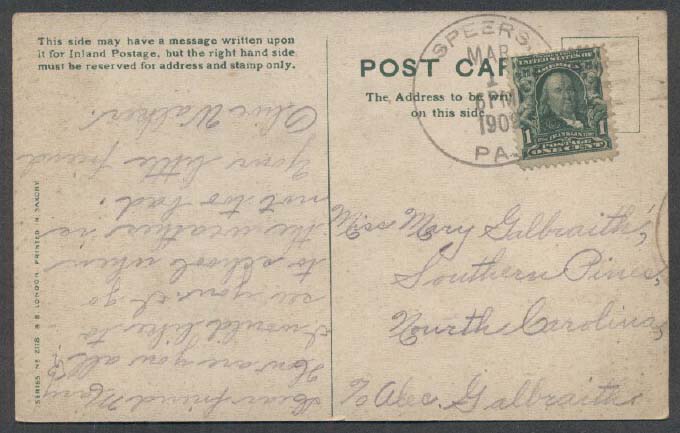 This side may have a message written upon
it for Inland Postage, but the right hand side
must be reserved for address and stamp only.
POST CAR
The Address to be writ
on this side.
SPEERS
MAR
1
6 PM
1909
PA.
UNITED STATES OF AMERICA
1 1
POSTAGE
ONE CENT
Dear friend Mary
How are you all
I would like to
see you I go
to school when
the weather is
not too bad.
Your little friend
Olive Walker.
Miss Mary Galbraith,
Southern Pines,
Nourth Carolina,
c/o Alec. Galbraith
SERIES No 2118 B. B. LONDON. PRINTED IN SAXONY